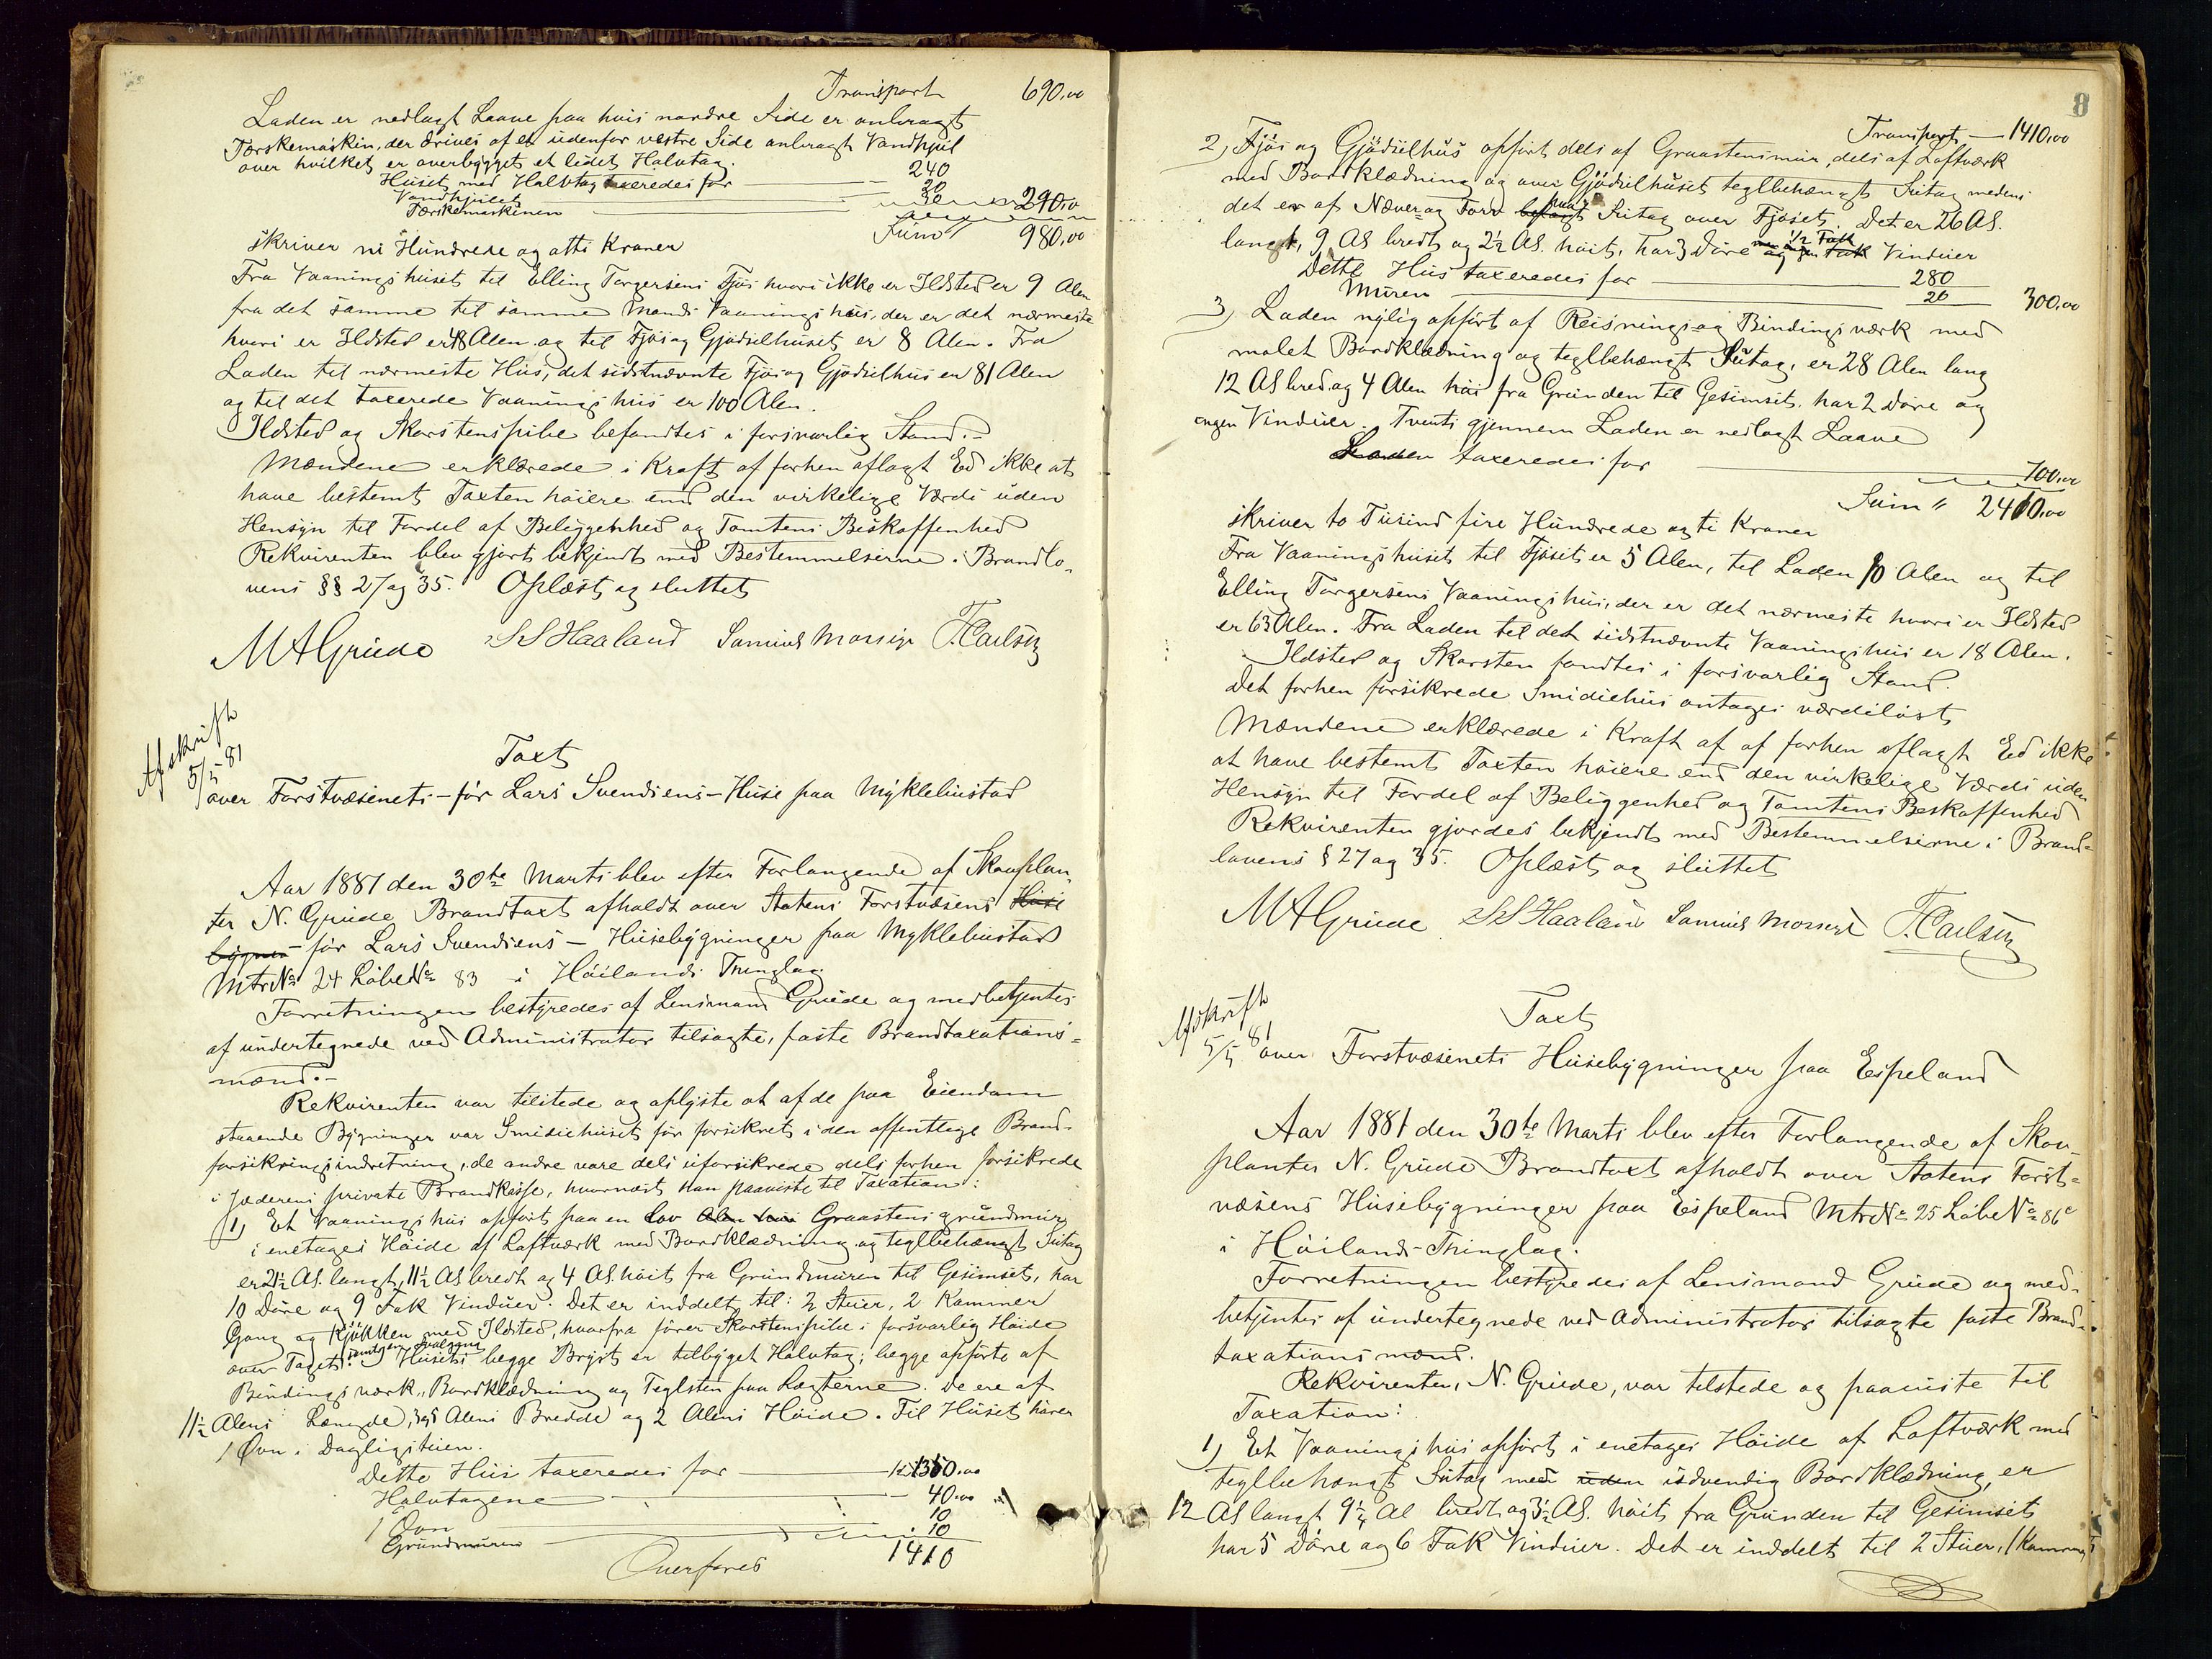 Transport 690,00
Laden er nedlagt Laave paa hvis nordre Side er anbragt
Tærskemaskin, der drives af et udenfor vestre Side anbragt Vandhjul
over hvilket er overbygget et lidet Halvtag.
Huset med Halvtag taxeredes for 240
Vandhjulet 20
Tærskemaskinen 30 290,00
Sum 980,00
skriver ni Hundrede og otti Kroner
Fra Vaaningshuset til Elling Torgersens Fjøs hvori ikke er Ildsted er 9 Alen
fra det samme til samme Mands Vaaningshus, der er det nærmeste
hvori er Ildsted er 48 Alen og til Fjøs og Gjødselhuset er 8 Alen. Fra
Laden til nærmeste Hus, det sidstnævnte Fjøs og Gjødselhus er 81 Alen
og til det taxerede Vaaningshus er 100 Alen.
Ildsted og Skorstenspibe befandtes i forsvarlig Stand.-
Mændene erklærede i Kraft af forhen aflagt Ed ikke at
have bestemt Taxten høiere end den virkelige Værdi uden
Hensyn til Fordel af Beliggenhed og Tomtens Beskaffenhed
Rekvirenten blev gjort bekjendt med Bestemmelserne i Brandlo-
vens §§ 27 og 35. Oplæst og sluttet
MAGrude SS Haaland Samuel Monsige T. Carlsen
Afskrift
5/5 81
Taxt
over Forstvæsenets - før Lars Svendsens - Huse paa Myklebustad
Aar 1881 den 30te Marts blev efter Forlangende af Skovplan-
ter N. Grude Brandtaxt afholdt over Statens Forstvæsens Huse
bygnin - før Lars Svendsens - Husebygninger paa Myklebustad
Mtr No 24 Løbe No 83 i Høilands Thinglag.
Forretningen bestyredes af Lensmand Grude og medbetjentes
af undertegnede ved Administrator tilsagte, faste Brandtaxations-
mænd.-
Rekvirenten var tilstede og oplyste at af de paa Eiendom
staaende Bygninger var Smidiehuset før forsikret i den offentlige Brand-
forsikringsindretning, de andre vare dels uforsikrede dels forhen forsikrede
i Jæderens private Brandkasse, hvornæst han paaviste til Taxation:
1) Et Vaaningshus opført paa en lav Alen høi Graastensgrundmur
i enetages Høide af Laftværk med Bordklædning og teglbehængt Sutag
er 21½ Al. langt, 11½ Al bredt og 4 Al. høit fra Grundmuren til Gesimset, har
10 Døre og 9 Fak Vinduer. Det er inddelt til: 2 Stuer, 2 Kammer
Gang og Kjøkken med Ildsted, hvorfra fører Skorstenspibe i forsvarlig Høide
over Taget. Husets begge Bryst er tilbyget Halvtag; begge opførte af
Bindingsværk, Bordklædning og Teglsten paa Lægterne. De ere af
11½ Alens Længde, 3 og 5 Alens Bredde og 2 Alens Høide. Til Huset hører
1 Ovn i Dagligstuen.
Dette Hus taxeredes for 1350,00
Halvtagene 40,00
1 Ovn 10
Grundmuren 10
Overføres 1410
8
Transport - 1410,00
2) Fjøs og Gjødselhus opført dels af Graastensmur, dels af Laftværk
med Bordklædning og over Gjødselhuset teglbehængt Sutag medens
det er af Næver og Torv belagt Sutag over Fjøset. Det er 26 Al.
langt, 9 Al bredt og 2½ Al. høit, har 3 Døre og ½ Fak Vinduer
Dette Hus taxeredes for 280
Muren 20 300,00
3) Laden nylig opført af Reisnings- og Bindingsværk med
malet Bordklædning og teglbehængt Sutag, er 28 Alen lang
12 Al bred og 4 Alen høi fra Grunden til Gesimset. har 2 Døre og
ingen Vinduer. Tvert gjennem Laden er nedlagt Laave
Laden taxeredes for 700,00
Sum " 2410,00
skriver to Tusind fire Hundrede og ti Kroner
Fra Vaaningshuset til Fjøset er 5 Alen, til Laden 10 Alen og til
Elling Torgersens Vaaningshus, der er det nærmeste hvori er Ildsted
er 63 Alen. Fra Laden til det sidstnævnte Vaaningshus er 18 Alen.
Ildsted og Skorsten fandtes i forsvarlig Stand.
Det forhen forsikrede Smidiehus antages værdiløst
Mændene erklærede i Kraft af af forhen aflagt Ed ikke
at have bestemt Taxten høiere end den virkelige Værdi uden
Hensyn til Fordel af Beliggenhed og Tomtens Beskaffenhed
Rekvirenten gjordes bekjendt med Bestemmelserne i Brand-
lovens § 27 og 35. Oplæst og sluttet
MAGrude SS Haaland Samuel Monsige T. Carlsen
Afskrift
5/5 81
Taxt
over Forstvæsenets Husebygninger paa Espeland
Aar 1881 den 30te Marts blev efter Forlangende af Skov-
planter N. Grude Brandtaxt afholdt over Statens Forst-
væsens Husebygninger paa Espeland Mtr No 25 Løbe No 86c
i Høilands Thinglag.
Forretningen bestyredes af Lensmand Grude og med-
betjentes af undertegnede ved Administrator tilsagte faste Brand-
taxationsmænd.
Rekvirenten, N. Grude, var tilstede og paaviste til
Taxation:
1) Et Vaaningshus opført i enetages Høide af Laftværk med
teglbehængt Sutag med uden udvendig Bordklædning, er
12 Al langt 9¼ Al bredt og 3½ Al. høit fra Grunden til Gesimset
har 5 Døre og 6 Fak Vinduer. Det er inddelt til 2 Stuer, 1 Kammer